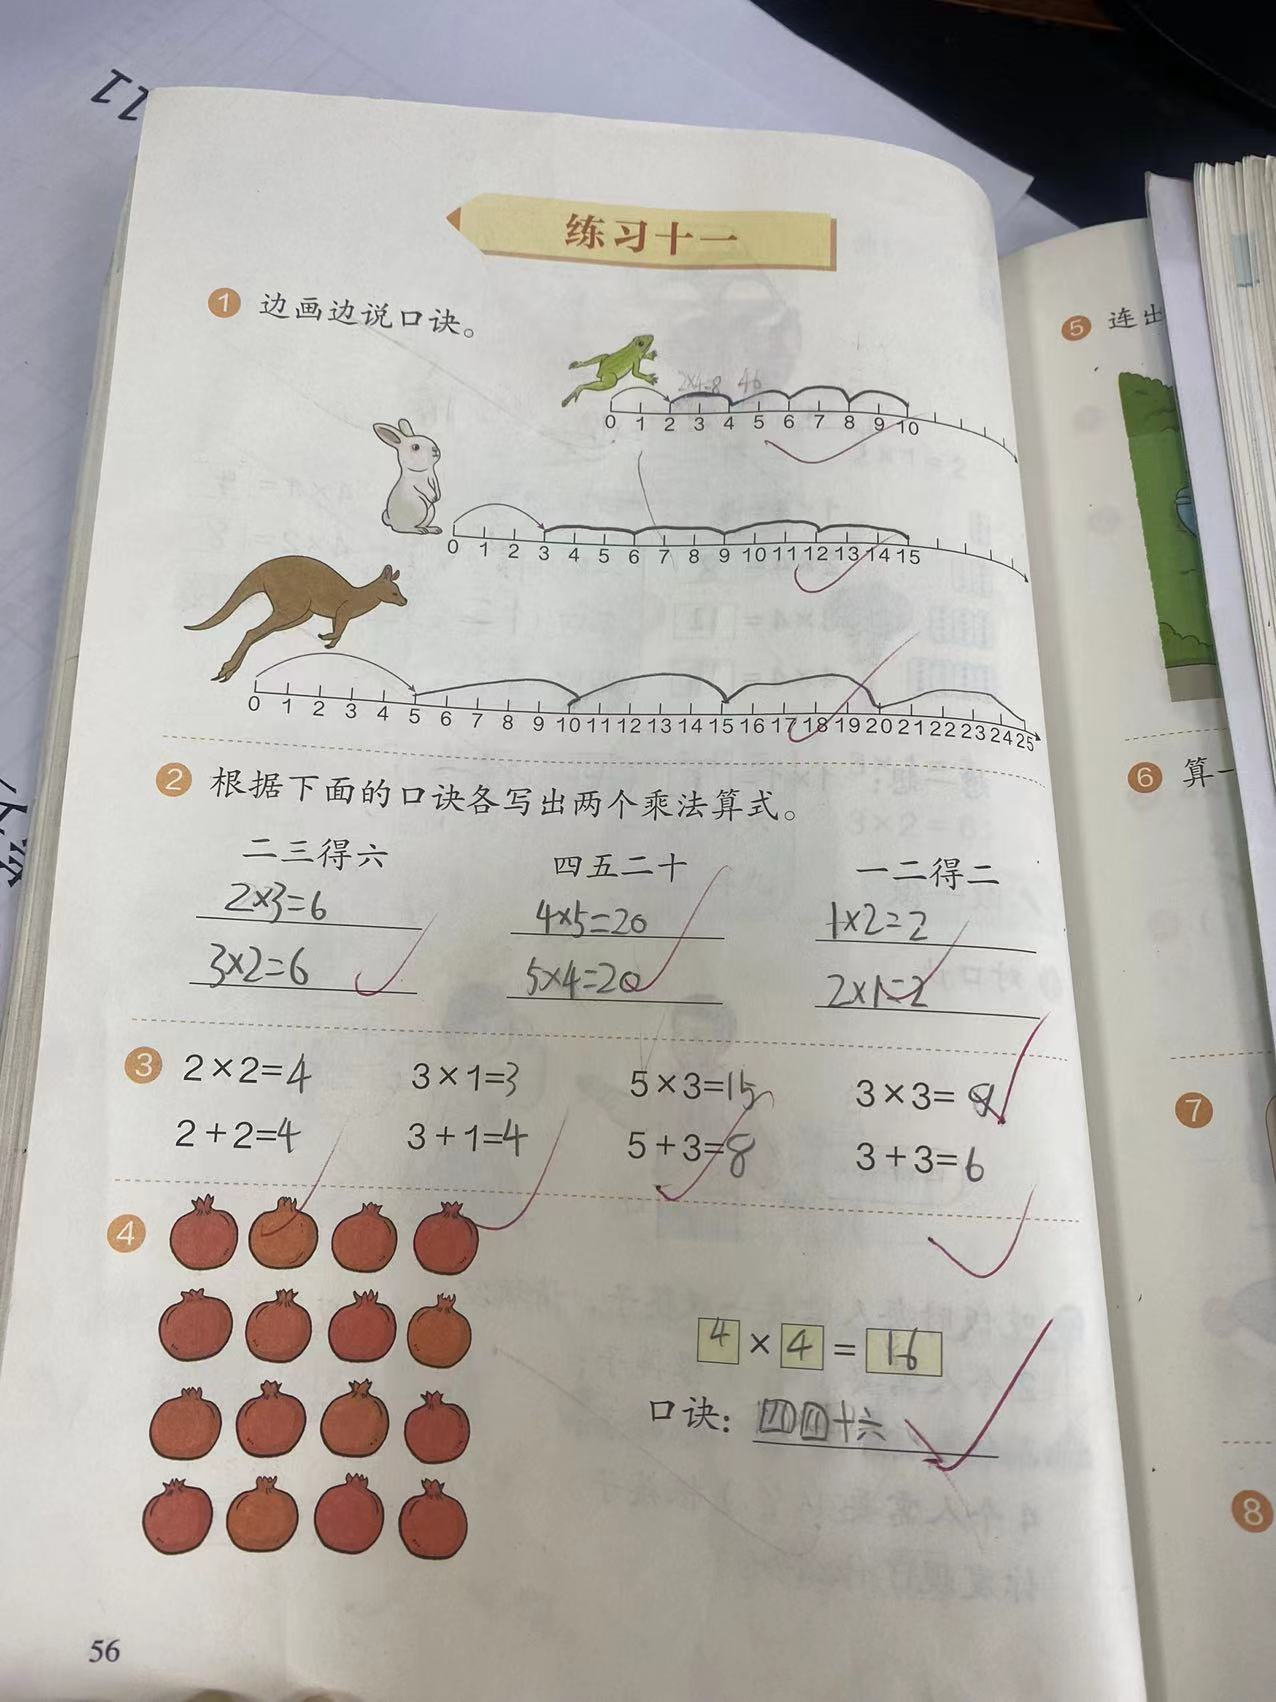 练习十一
1 边画边说口诀。
2×4=8
0 1 2 3 4 5 6 7 8 9 10
0 1 2 3 4 5 6 7 8 9 10 11 12 13 14 15
0 1 2 3 4 5 6 7 8 9 10 11 12 13 14 15 16 17 18 19 20 21 22 23 24 25
2 根据下面的口诀各写出两个乘法算式。
二三得六 四五二十 一二得二
2×3=6 4×5=20 1×2=2
3×2=6 5×4=20 2×1=2
3 2×2=4 3×1=3 5×3=15 3×3=
2+2=4 3+1=4 5+3=8 3+3=6
4
4 × 4 = 16
口诀：四四十六
56
5 连出
6 算一
7
8